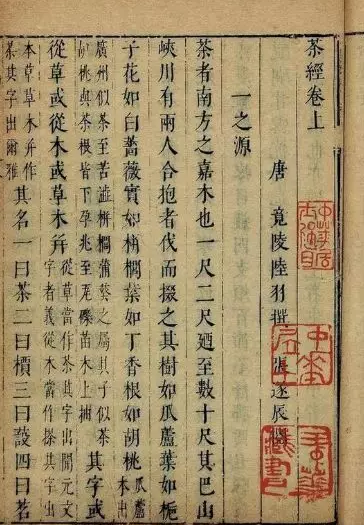 茶經卷上
唐 竟陵陸羽撰 張遂辰閱
一之源
茶者南方之嘉木也一尺二尺廼至數十尺其巴山
峽川有兩人合抱者伐而掇之其樹如瓜蘆葉如梔
子花如白薔薇實如栟櫚葉如丁香根如胡桃
瓜蘆
木出
廣州似茶至苦澁栟櫚蒲葵之屬其子似茶
胡桃與茶根皆下孕兆至瓦礫苗木上抽
其字或
從草或從木或草木并
從草當作茶其字出開元文
字者義從木當作搽其字出
本草草木并作
茶其字出爾雅
其名一曰茶二曰檟三曰蔎四曰茗